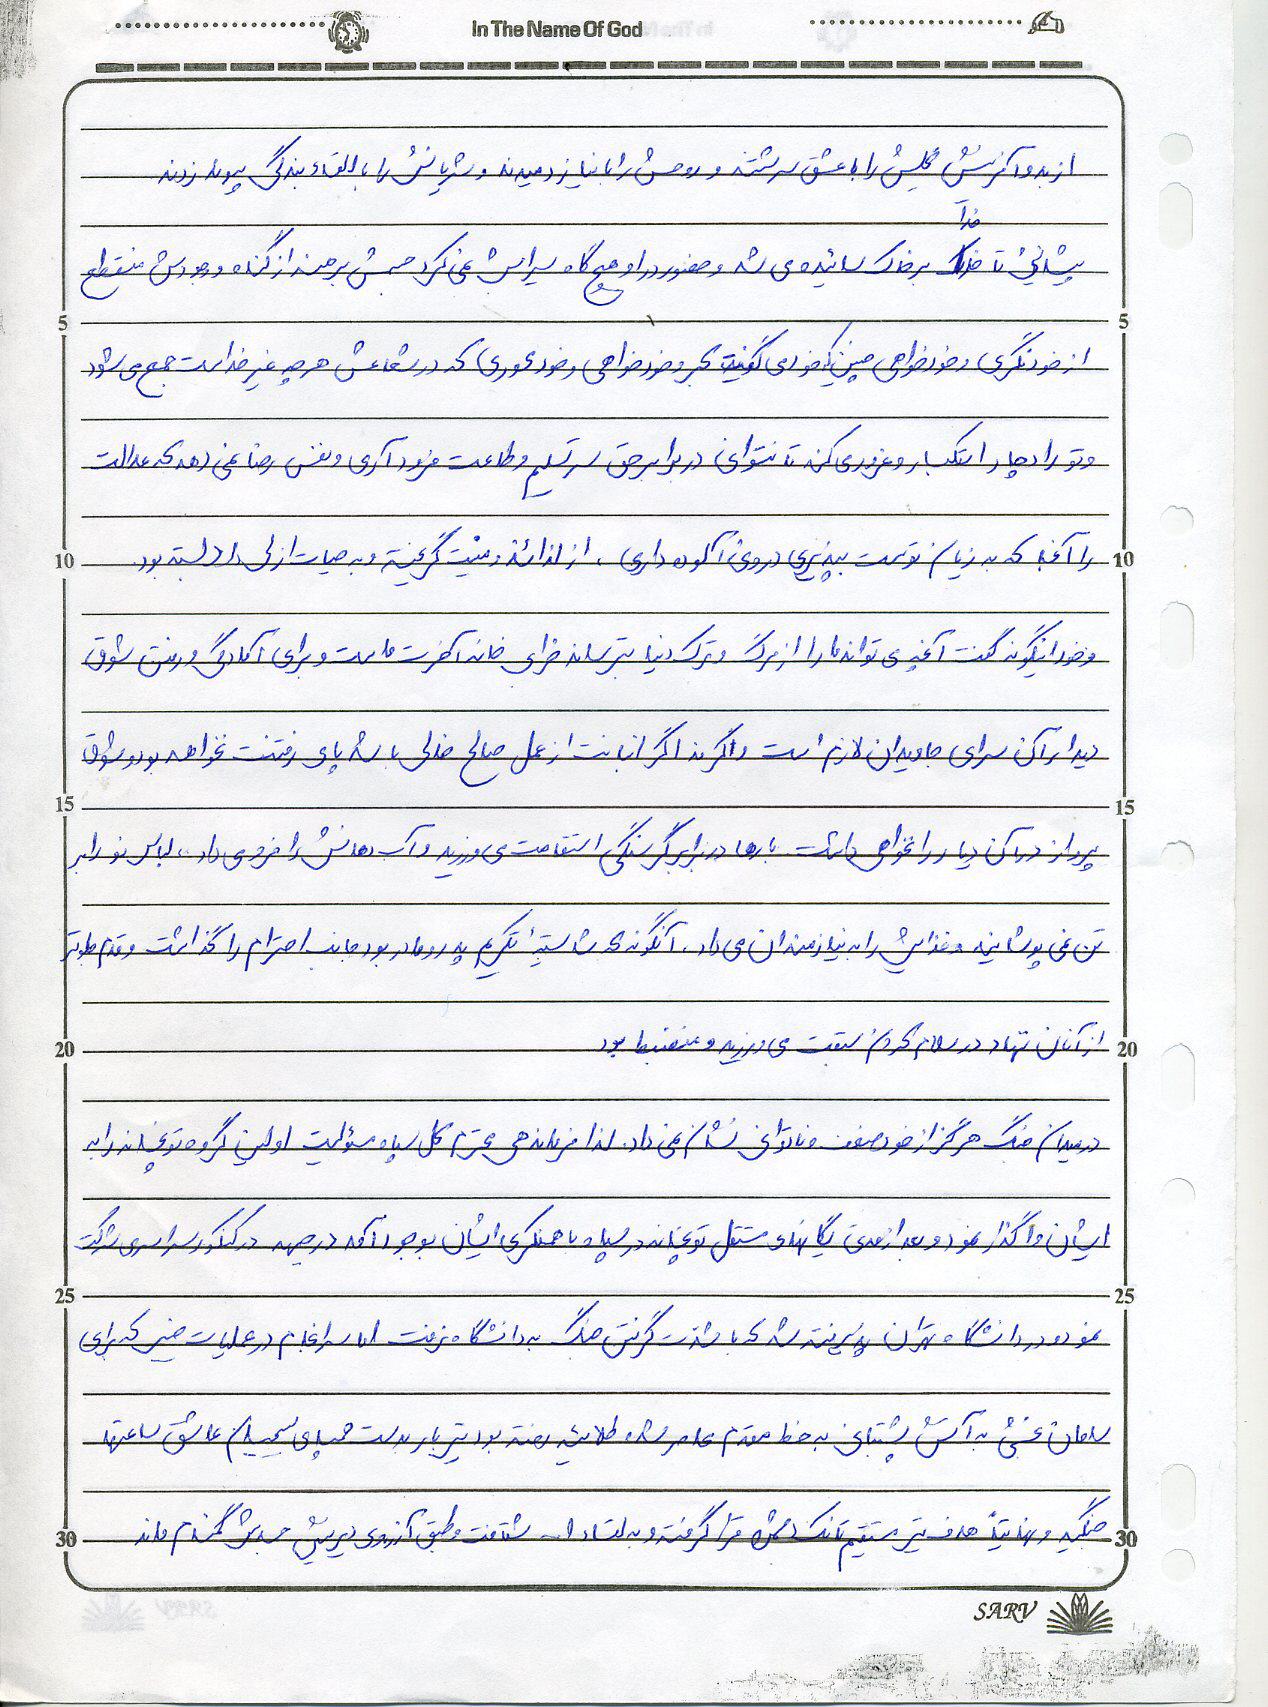 In The Name Of God
از بدو آفرینش گلش را با عشق سرشتند و روحش را با نیاز دمیدند و شریانش را با القاء بندگی پیوند زدند
خدا
پیشانیش تا بر خاک سائیده می شد و حضور در او هیچ گاه سیرابش نمی کرد جسمش بر حذر از گناه وجودش منقطع
از خودنگری و خودخواهی چنین که خود می گفت کبر و خودخواهی و خودمحوری که در شعاعش هر چه غیر خداست جمع می شود
و تو را دچار استکبار و غروری کند تا نتوانی در برابر حق سر تسلیم و طاعت فرود آری و نفس رضا نمی دهد که عدالت
را آنجا که به زیان توست بپذیری آلوده داری ، از لذائذ گریخته و به حیات ازلی دلبسته بود.
و خود اینگونه گفت آنچه می تواند ما را از مرگ و ترک دنیا بترساند خرابی خانه آخرت ماست و برای آمادگی و رفتن شوق
دیدار آن سرای جاویدان لازم است و اگر نه اگر انبانت از عمل صالح خالی باشد پای رفتنت نخواهد بود و شوق
پرواز در آن دیار را نخواهی داشت بارها در برابر گرسنگی استقامت می ورزید و آب دهانش را فرو می داد ، لباس نو را بر
تن نمی پوشانید و غذایش را به نیازمندان می داد ، آنگونه که شایسته تکریم پدر و مادر بود جانب احترام را گذاشت و قدم جلوتر
از آنان ننهاد در سلام کردن سبقت می ورزید و منضبط بود
در میدان جنگ هرگز از خود ضعف و ناتوانی نشان نمی داد. لذا فرماندهی محترم کل سپاه مسئولیت اولین گروه توپخانه را به
ایشان واگذار نمود و بعد از مدتی یگانهای مستقل توپخانه در سپاه با همفکری ایشان بوجود آمد در جبهه در کنکور سراسری شرکت
نمود و در دانشگاه تهران پذیرفته شد که با شدت گرفتن جنگ به دانشگاه نرفت اما سرانجام در عملیات خیبر که برای
سامان بخشی به آتش پشتیبانی به خط مقدم محاصره شده طلائیه رفته بود تیربار بدست همپای بسیجیان عاشق ساعتها
جنگید و نهایتاً هدف تیر مستقیم تانک دشمن قرار گرفت و به لقاء الله شتافت و طبق آرزوی دیرینش جسدش گمنام ماند
5
10
15
20
25
30
5
10
15
20
25
30
SARV